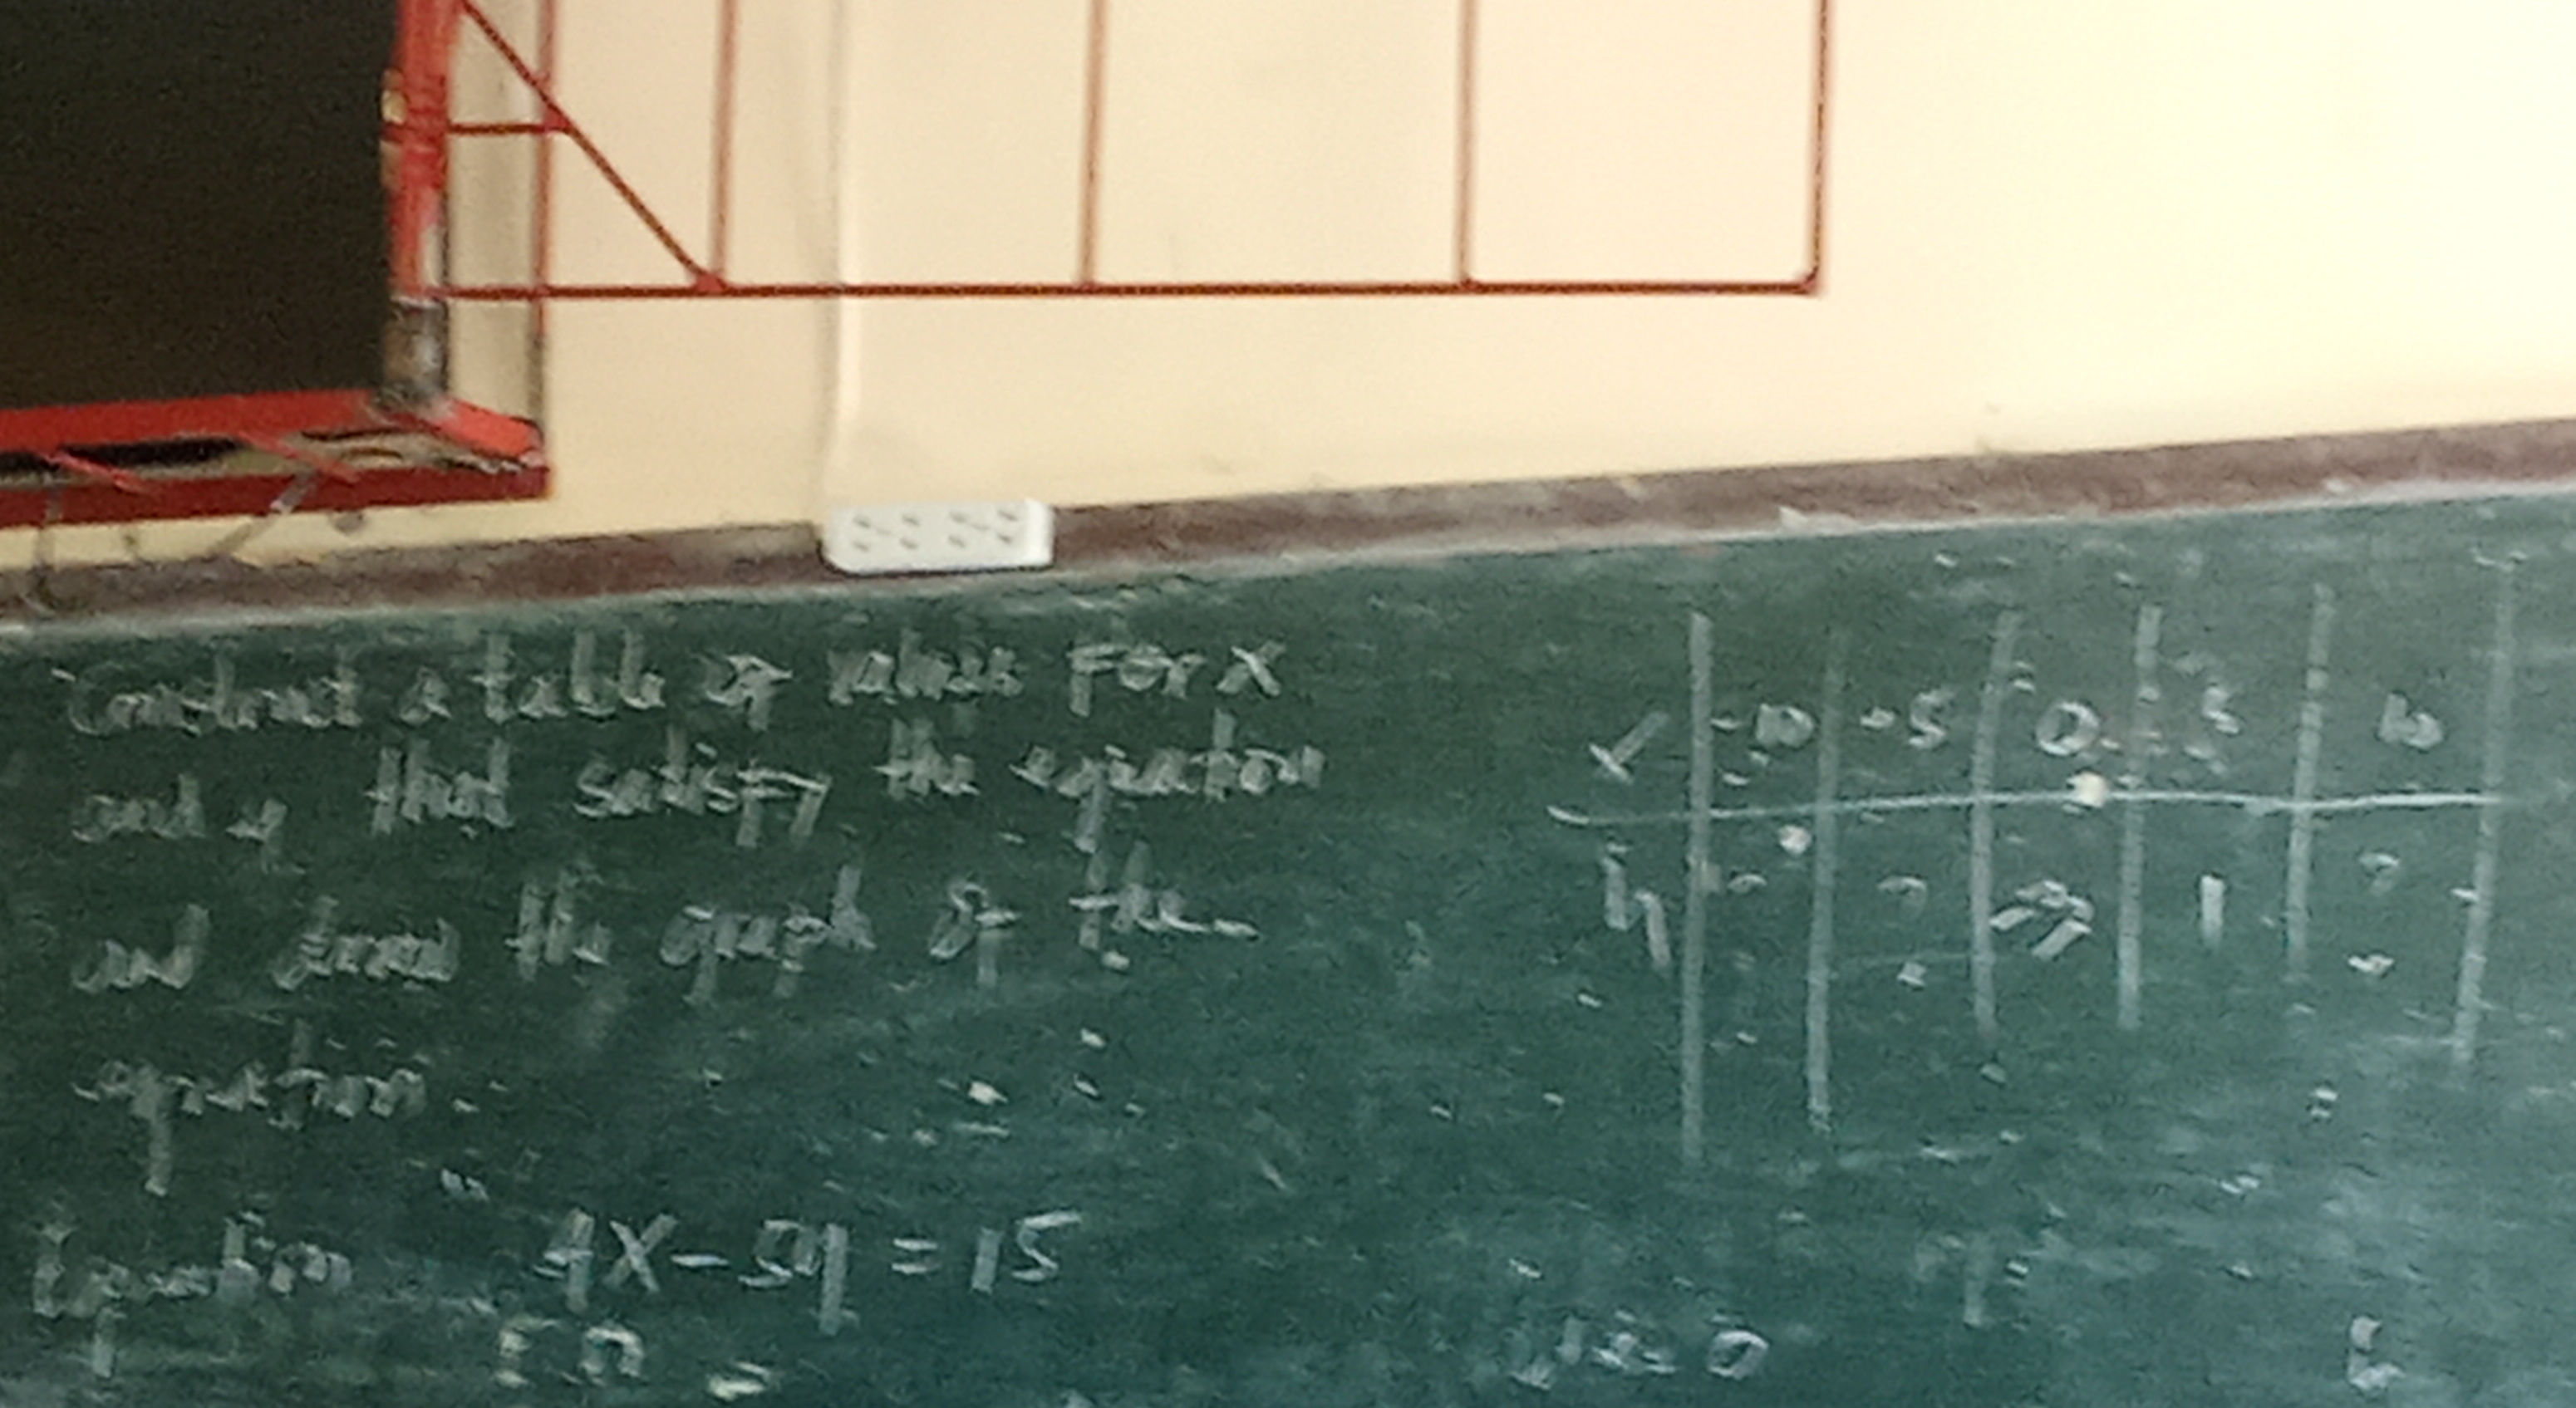 Construct a table of values For x
and y that satisfy the equation
and draw the graph of the
equation.
Equation 4x - 5y = 15
x -10 -5 0 5 10
y 1